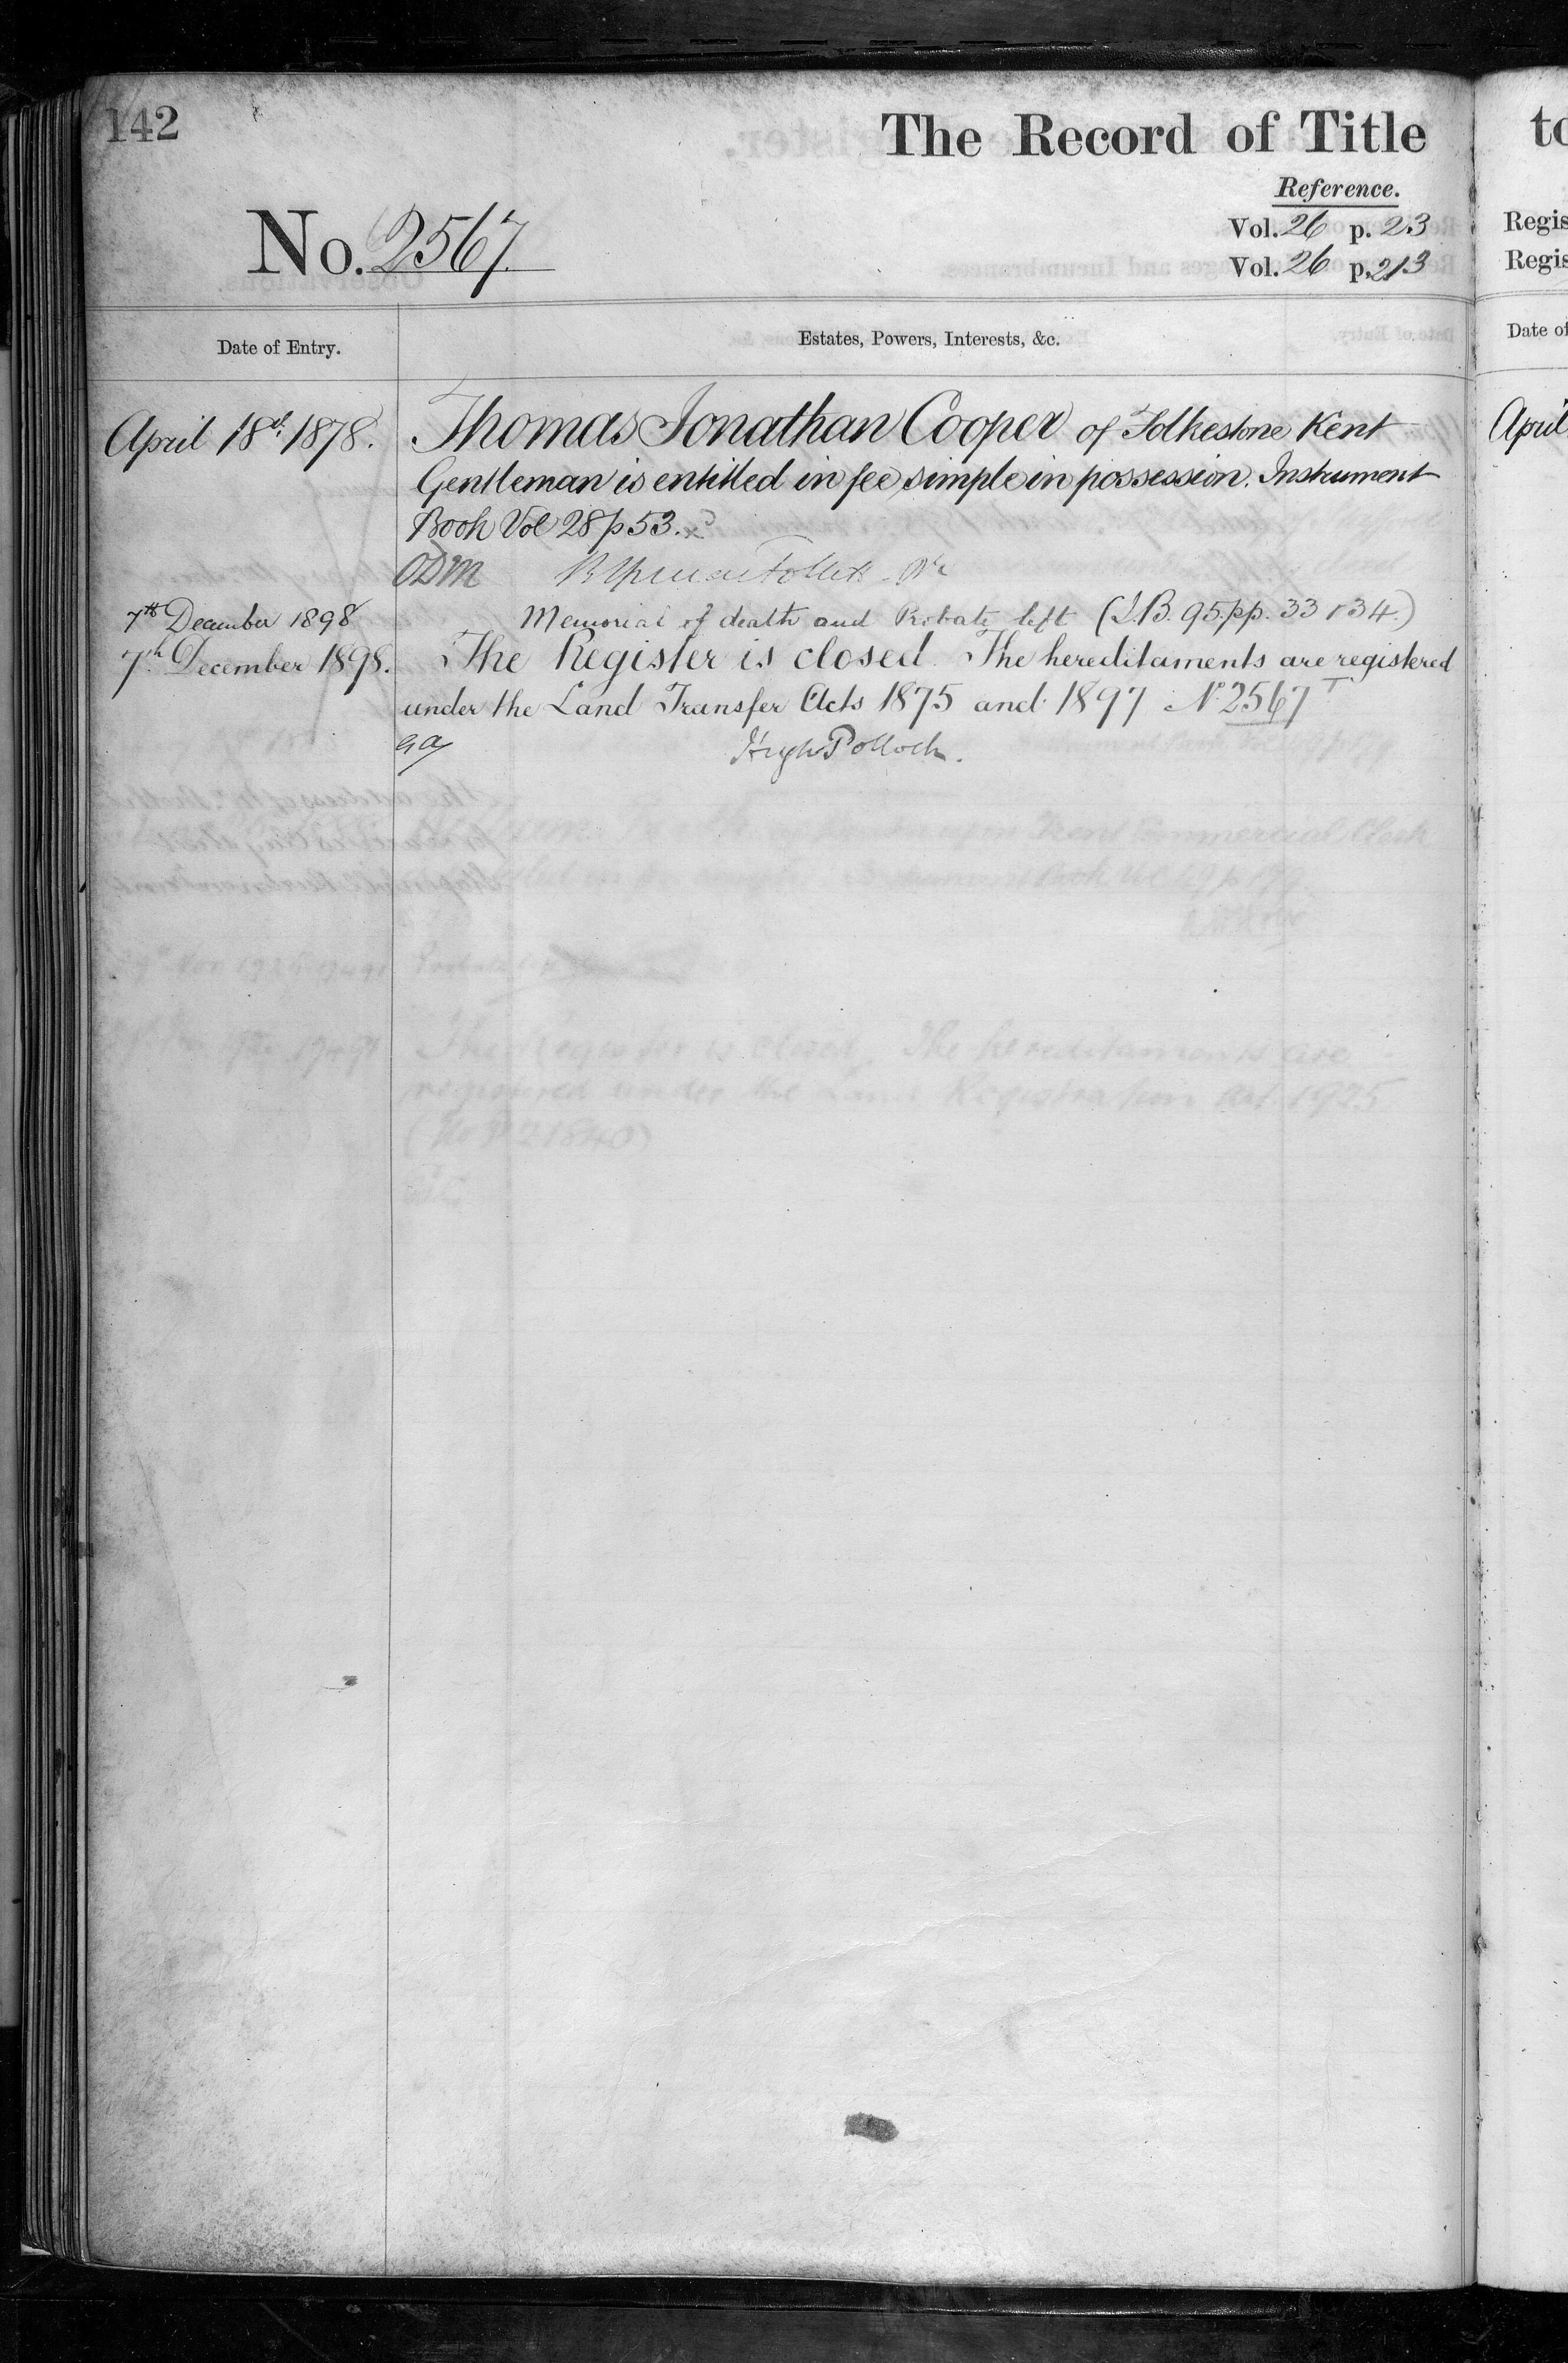 142
The Record of Title
Reference.
No. 2567.
Vol. 26 p. 23
Vol. 26 p. 213
Date of Entry.
Estates, Powers, Interests, &c.
April 18th 1878.
Thomas Jonathan Cooper of Folkestone Kent
Gentleman is entitled in fee simple in possession. Instrument
Book Vol 28 p 53.
ODM Follett
7th December 1898
Memorial of death and Probate left (I.B. 95. pp. 33 & 34.)
7th December 1898.
The Register is closed. The hereditaments are registered
under the Land Transfer Acts 1875 and 1897 No 2567 T
Hugh Pollock.
The Register is closed. The hereditaments are
registered under the Land Registration Act 1925
to
Regis
Regis
Date of
April